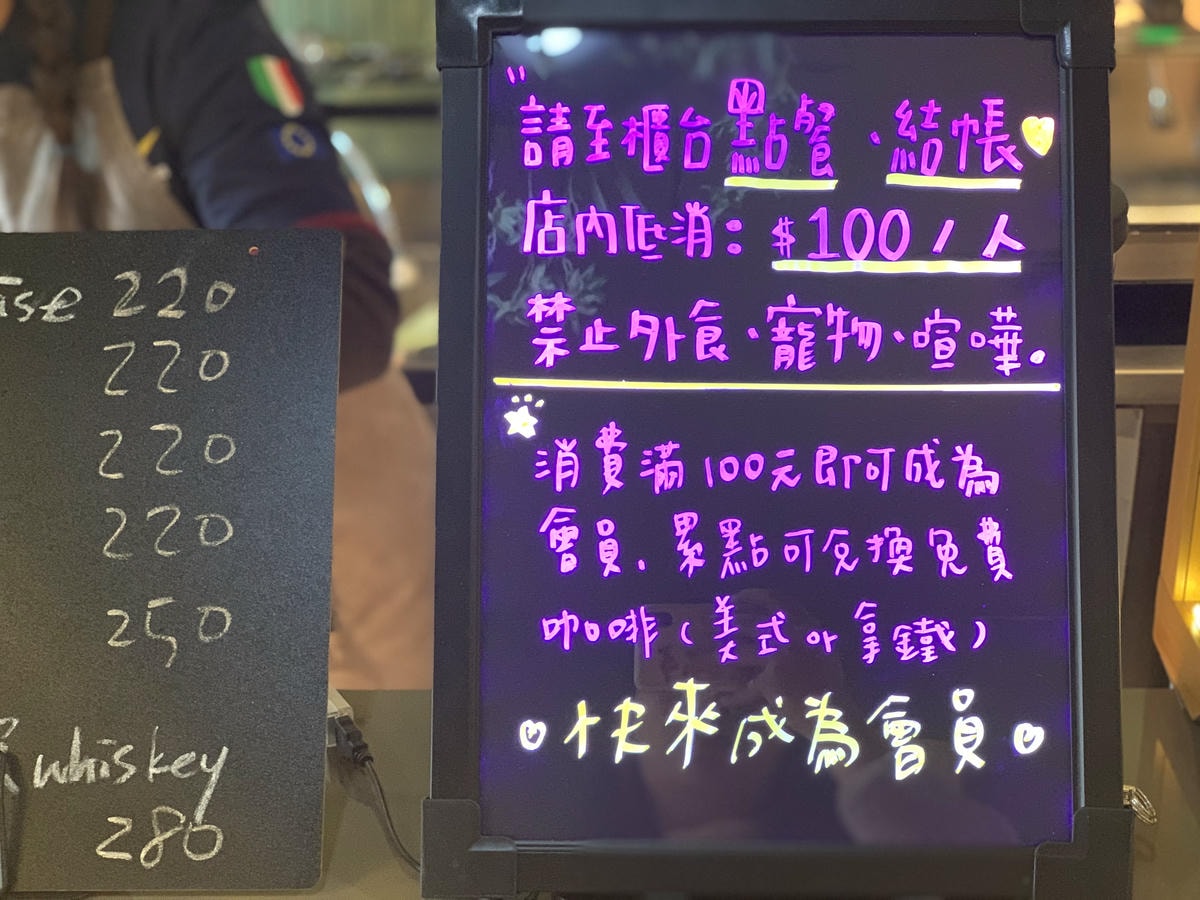 220
220
220
220
250
whiskey
280
"請至櫃台點餐、結帳
店內低消：$100/人
禁止外食、寵物、喧嘩。
消費滿100元即可成為
會員，累點可兌換免費
咖啡(美式or拿鐵)
快來成為會員